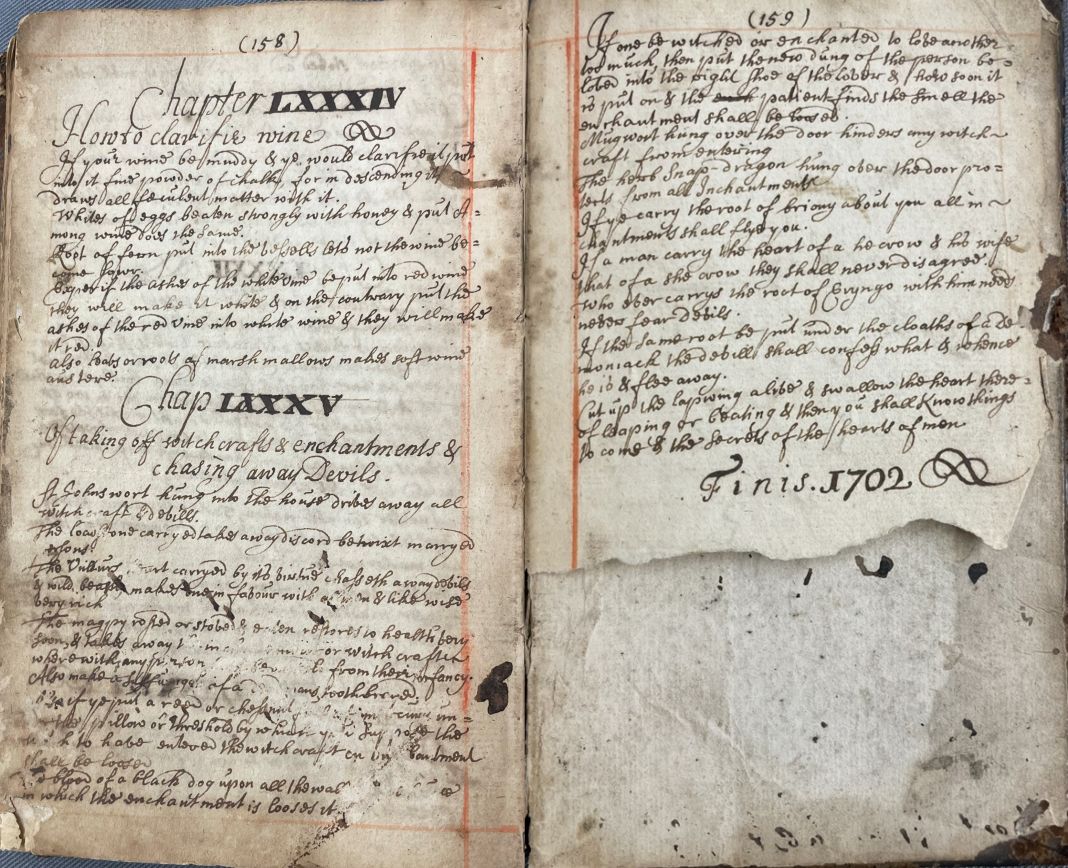 (158)
Chapter LXXXIV
How to clarifie wine
If your wine be muddy & ye would clarifie it put
into it fine powder of chalk, for in descending it
draws all feculent matter with it.
Whites of eggs beaten strongly with honey & put A=
mong wine does the same.
Root of fern put into the vessells lets not the wine be=
come sowr.
if the ashes of the white vine be put into red wine
they will make it white & on the contrary put the
ashes of the red vine into white wine & they will make
it red.
also leavs or roots of marsh mallows makes soft wine
austere.
Chap LXXXV
Of taking off witchcrafts & enchantments &
chasing away Devils.
St Johns wort hung into the house drives away all
witchcraft & devills.
The carryed takes away discord betwixt marryed
The carryed by its virtue chasseth away devils
& wild beasts makes them favour with & like wise
very rich
The magpy rosted or stoved & eaten restores to health very
soon, & takes away or witch crafter
where with any person from their infancy.
Also make a of a
if ye put a reed or chesnut un=
pillow or threshold by which you suppose the
to have entered the witchcraft
shall be loosed
blood of a black dog upon all the
in which the enchantment is looses it
(159)
If one be witched or enchanted to love another
too much, then put the new dung of the person be=
loved into the right shoe of the lover & how soon it
is put on & the patient finds the smell the
enchantment shall be loosed.
Mugwort hung over the door hinders any witch~
craft from entering
The herb Snap-dragon hung over the door pro=
tects from all Inchantments
If ye carry the root of briony about you all in~
chantments shall flye you.
If a man carry the heart of a he crow & his wife
that of a she crow they shall never disagree.
who ever carrys the root of Eryngo with him need
never fear devils.
If the same root be put under the cloaths of a de=
moniack the devill shall confess what & whence
he is & flee away.
Cut up the lapwing alive & swallow the heart there=
of leaping or beating & then you shall know things
to come & the secrets of the hearts of men
Finis. 1702